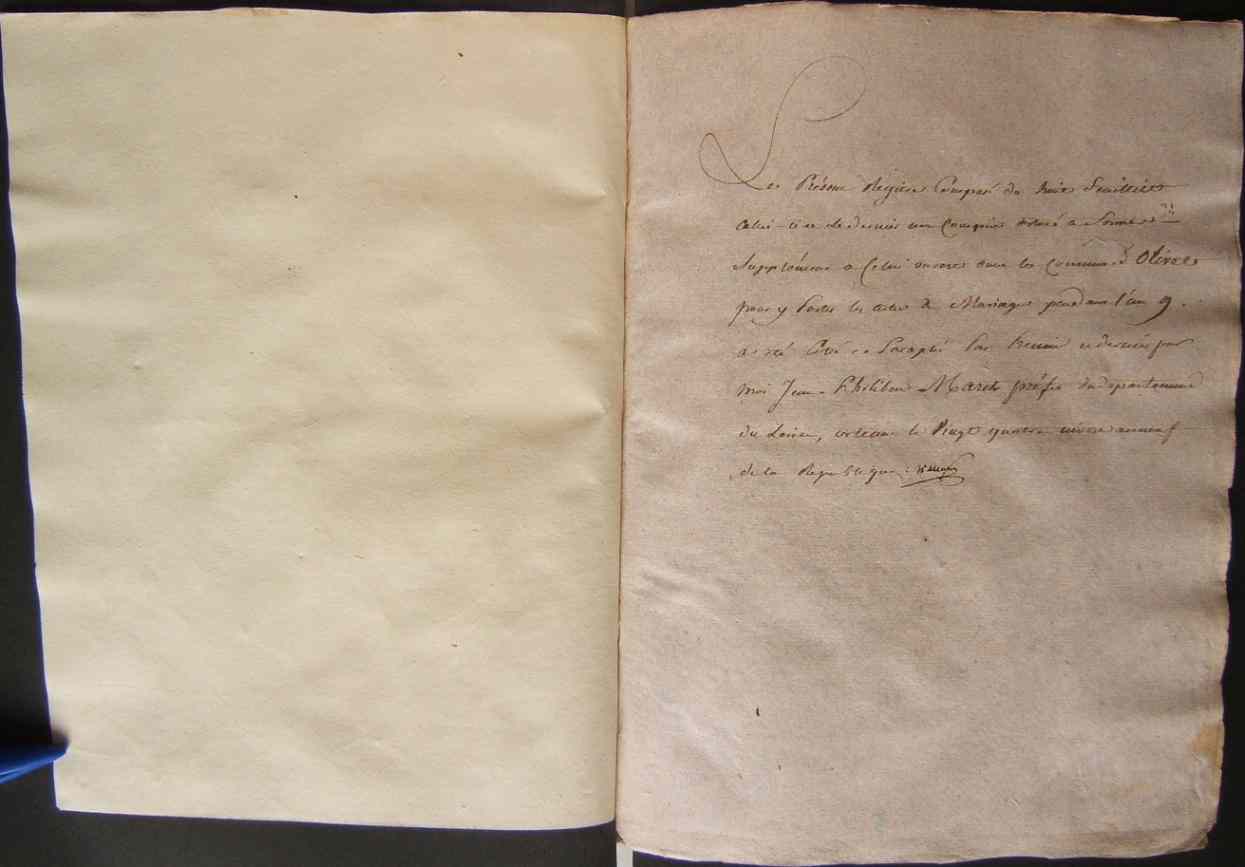 Le Présent Registre Composé de huit feuillets
celui-ci et le dernier non compris destiné a Servir de
Supplément a Celui ouvert dans la Commune d'Olivet
pour y Porter les actes de Mariages pendant l'an 9.
a été Coté et Paraphé Par Premier et dernier par
moi Jean-Philibert Maret préfet du département
du Loiret, orléans le Vingt quatre nivose an neuf
de la République